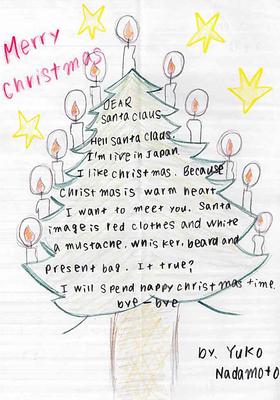 Merry
Christmas
DEAR
Santa claus
Hell santa claus.
I'm live in Japan
I like christmas. Because
christmas is warm heart
I want to meet you. Santa
image is red clothes and white
a mustache. whisker, beard and
present bag. It true?
I will spend happy christmas time.
bye-bye
by. Yuko
Nadamoto